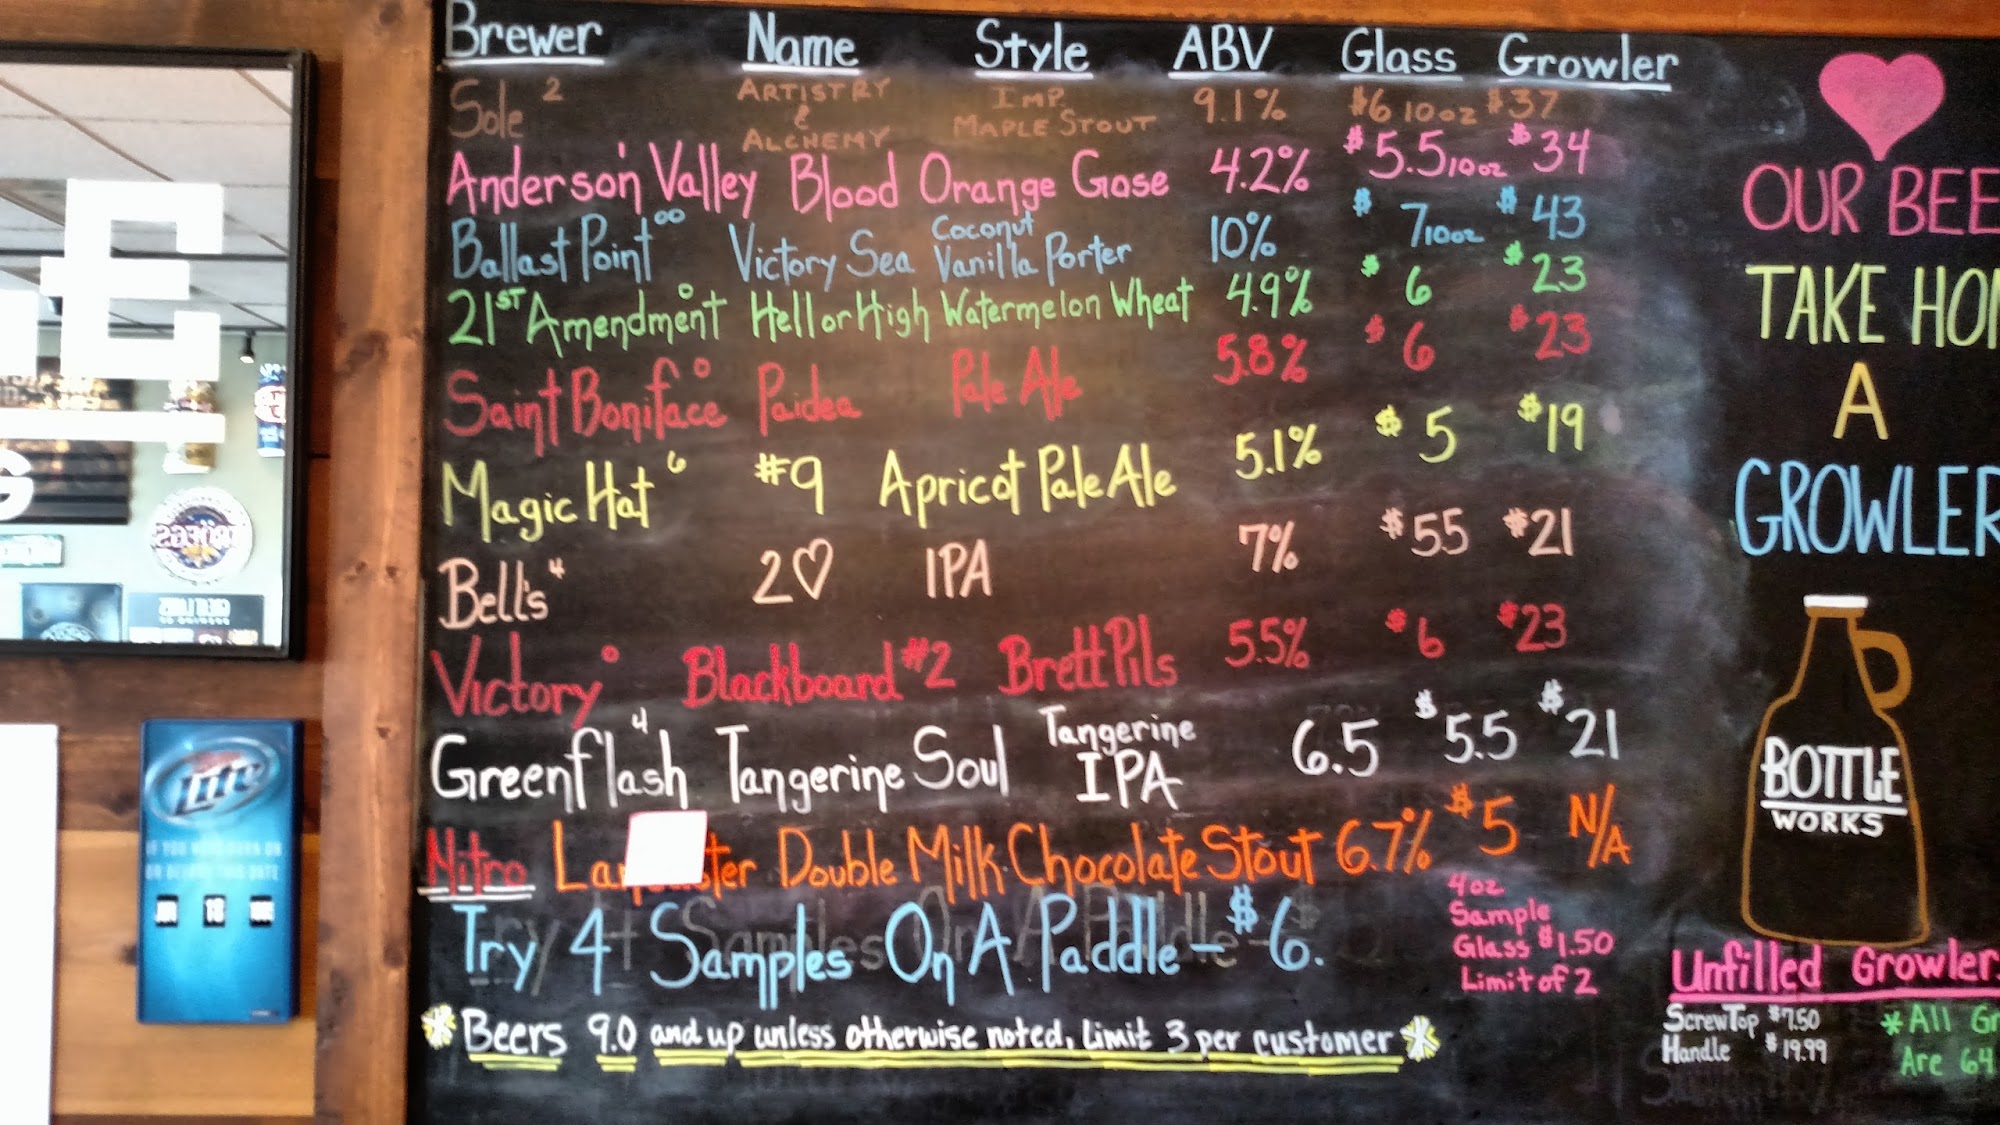 Brewer Name Style ABV Glass Growler
Sole 2 ARTISTRY & ALCHEMY IMP. MAPLE STOUT 9.1% $6 10oz $37
Anderson Valley Blood Orange Gose 4.2% $5.5 10oz $34
Ballast Point Victory Sea Coconut Vanilla Porter 10% $7 10oz $43
21ST Amendment Hell or High Watermelon Wheat 4.9% $6 $23
Saint Boniface Paidea Pale Ale 5.8% $6 $23
Magic Hat 6 #9 Apricot Pale Ale 5.1% $5 $19
Bell's 4 2♡ IPA 7% $5.5 $21
Victory Blackboard #2 Brett Pils 5.5% $6 $23
Greenflash 4 Tangerine Soul Tangerine IPA 6.5 $5.5 $21
Nitro Double Milk Chocolate Stout 6.7% $5 N/A
Try 4 Samples On A Paddle - $6.
4oz
Sample
Glass $1.50
Limit of 2
*Beers 9.0 and up unless otherwise noted, limit 3 per customer*
OUR BEE
TAKE HO
A
GROWLER
BOTTLE
WORKS
Unfilled Growler
Screw Top $7.50
Handle $19.99
*All Gr
Are 64
Lite